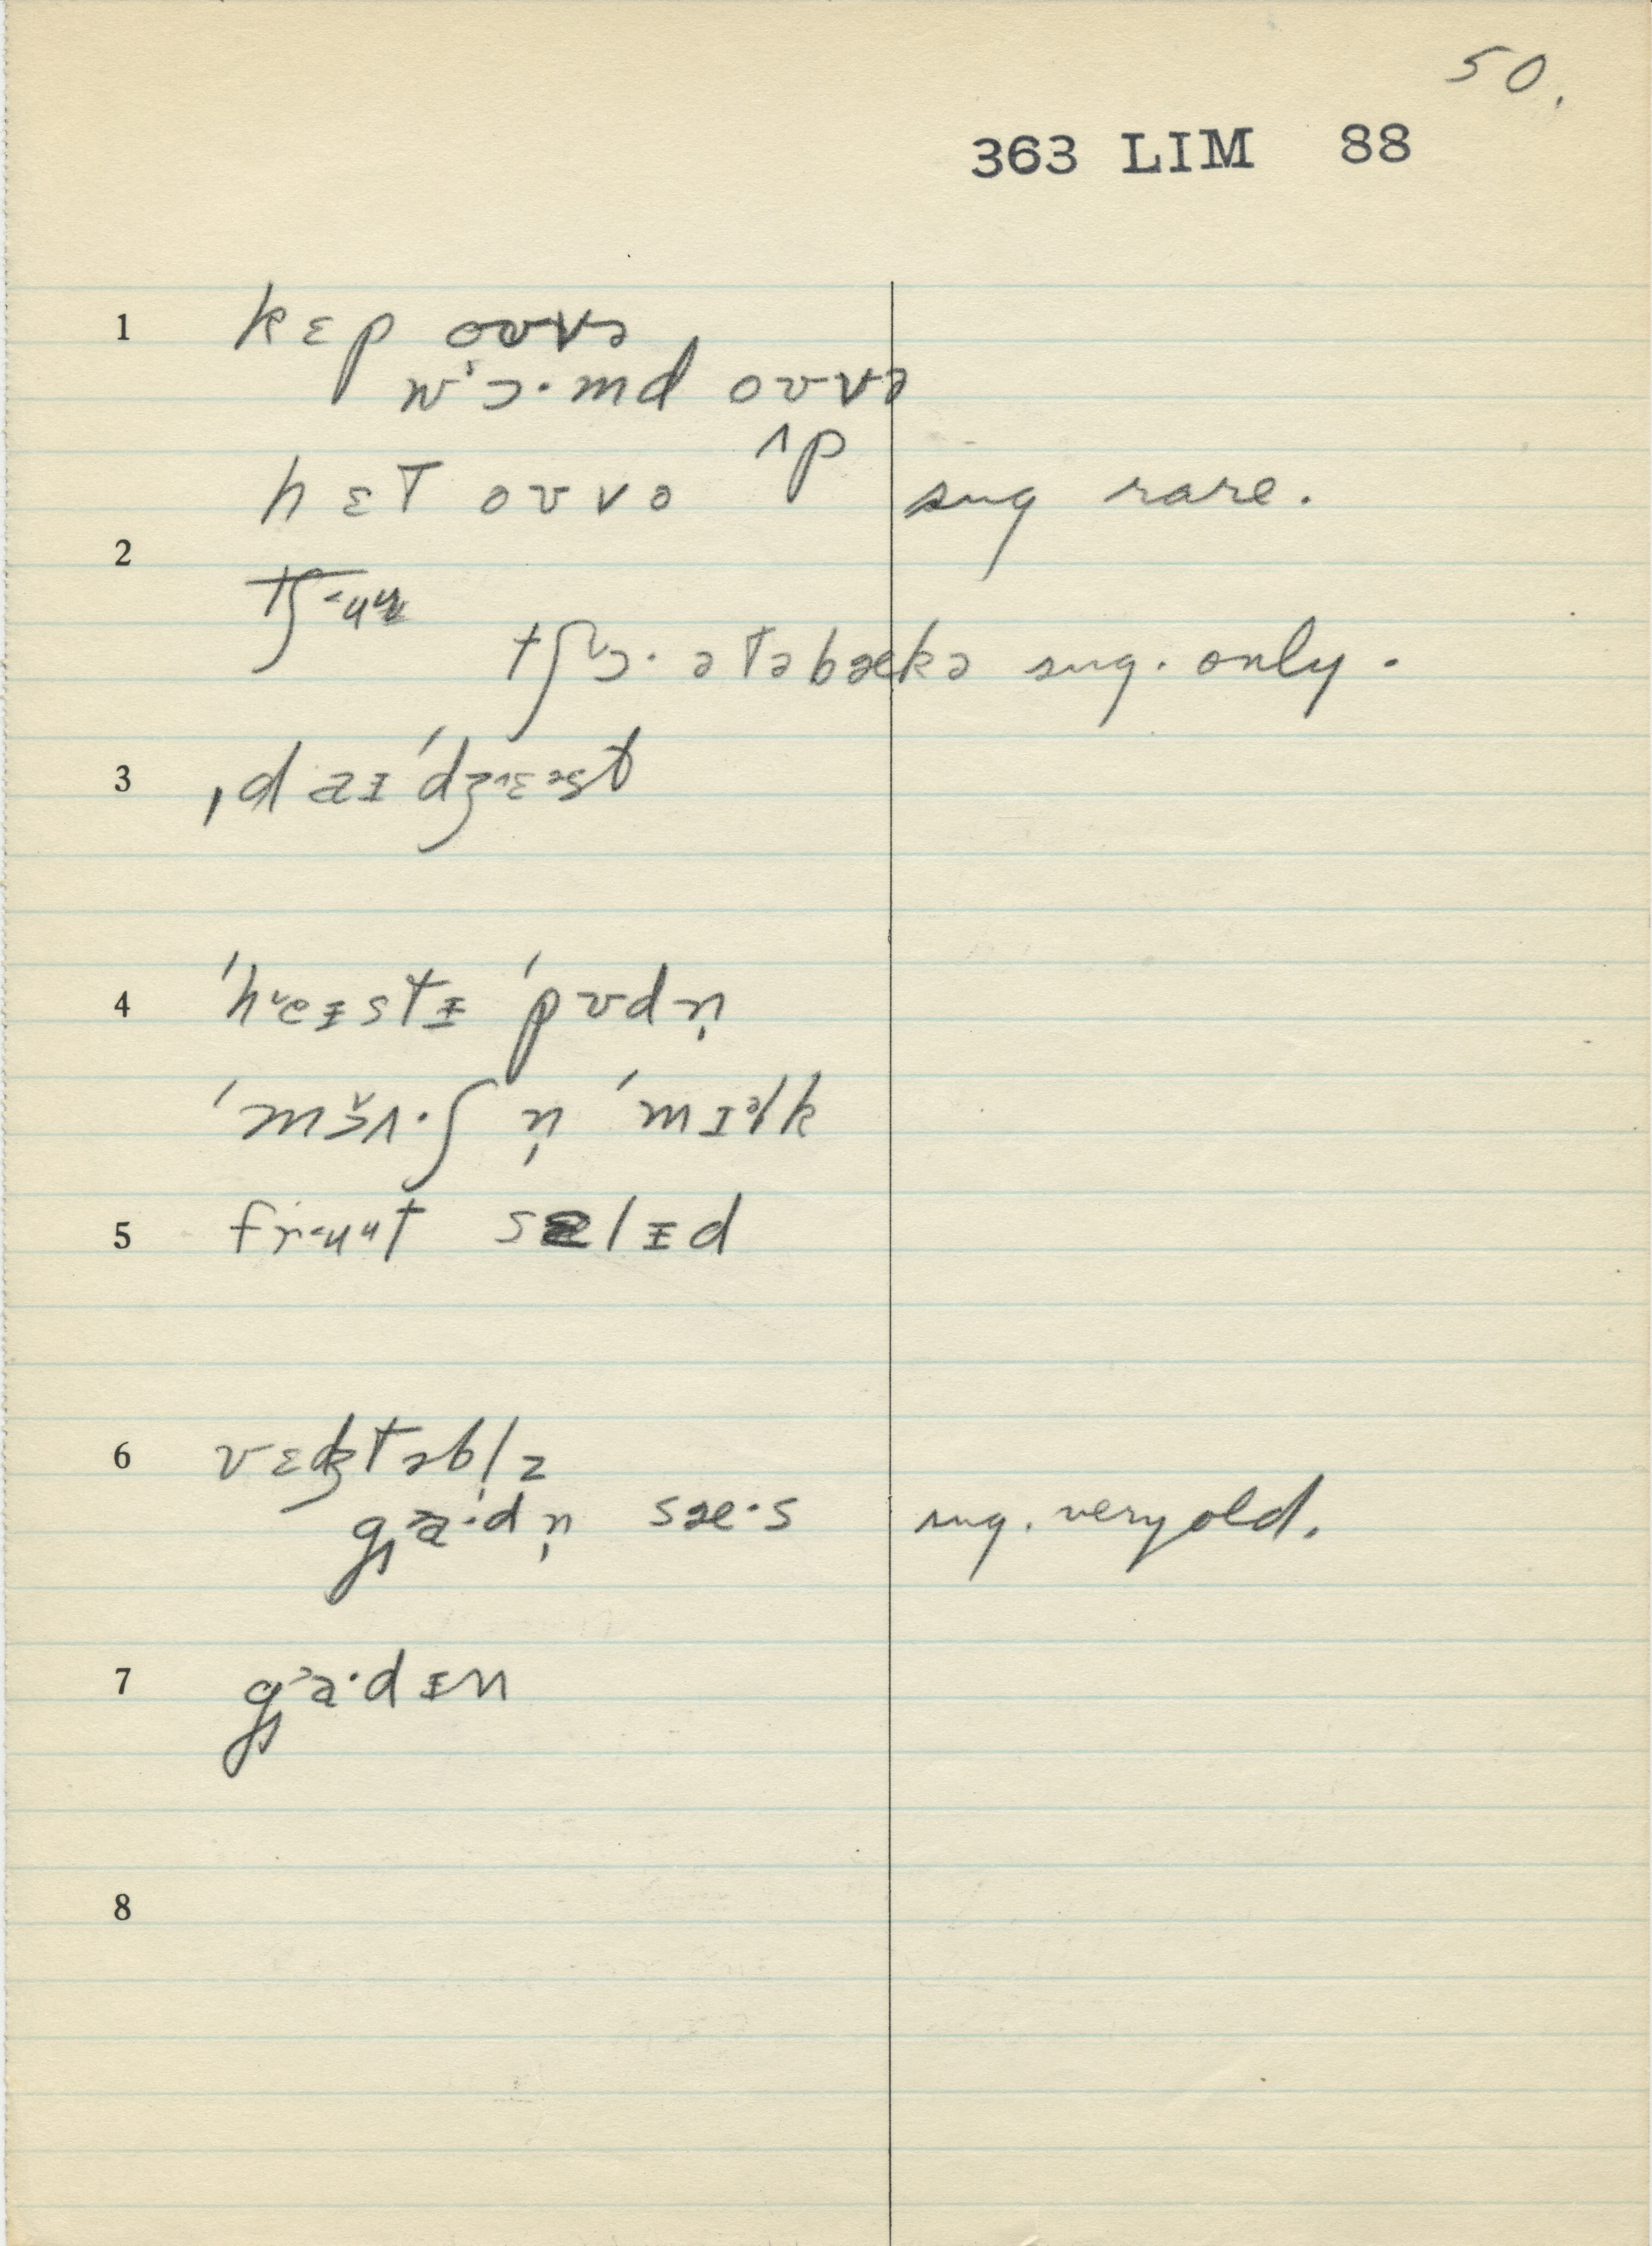 50.
363 LIM 88
1 kɛp oʊvə
w'ɔ·md oʊvə
ʌp
hɛt oʊvə sug rare.
2
tʃɔ·ətəbækə sug. only.
3 ˌdaɪˈdʒɛəst
4 ˈheɪstɪ ˈpʊdn̩
ˈmɜʌ·ʃ n̩ ˈmɪəlk
5 frʉut sælɪd
6 vɛdʒtəbl̩z
ga·dn̩ sæ·s sug. very old.
7 ga·dɪn
8